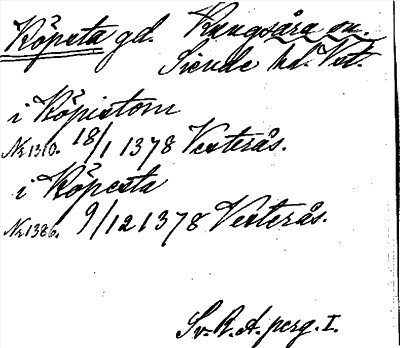 Köpsta gd. Kungsåra sn.
Siende hd. Vst.
i Köpistom
Nr 1310. 18/1 1378 Vesterås.
i Köpesta
Nr 1386. 9/12 1378 Vesterås.
Sv. R. A. perg. I.